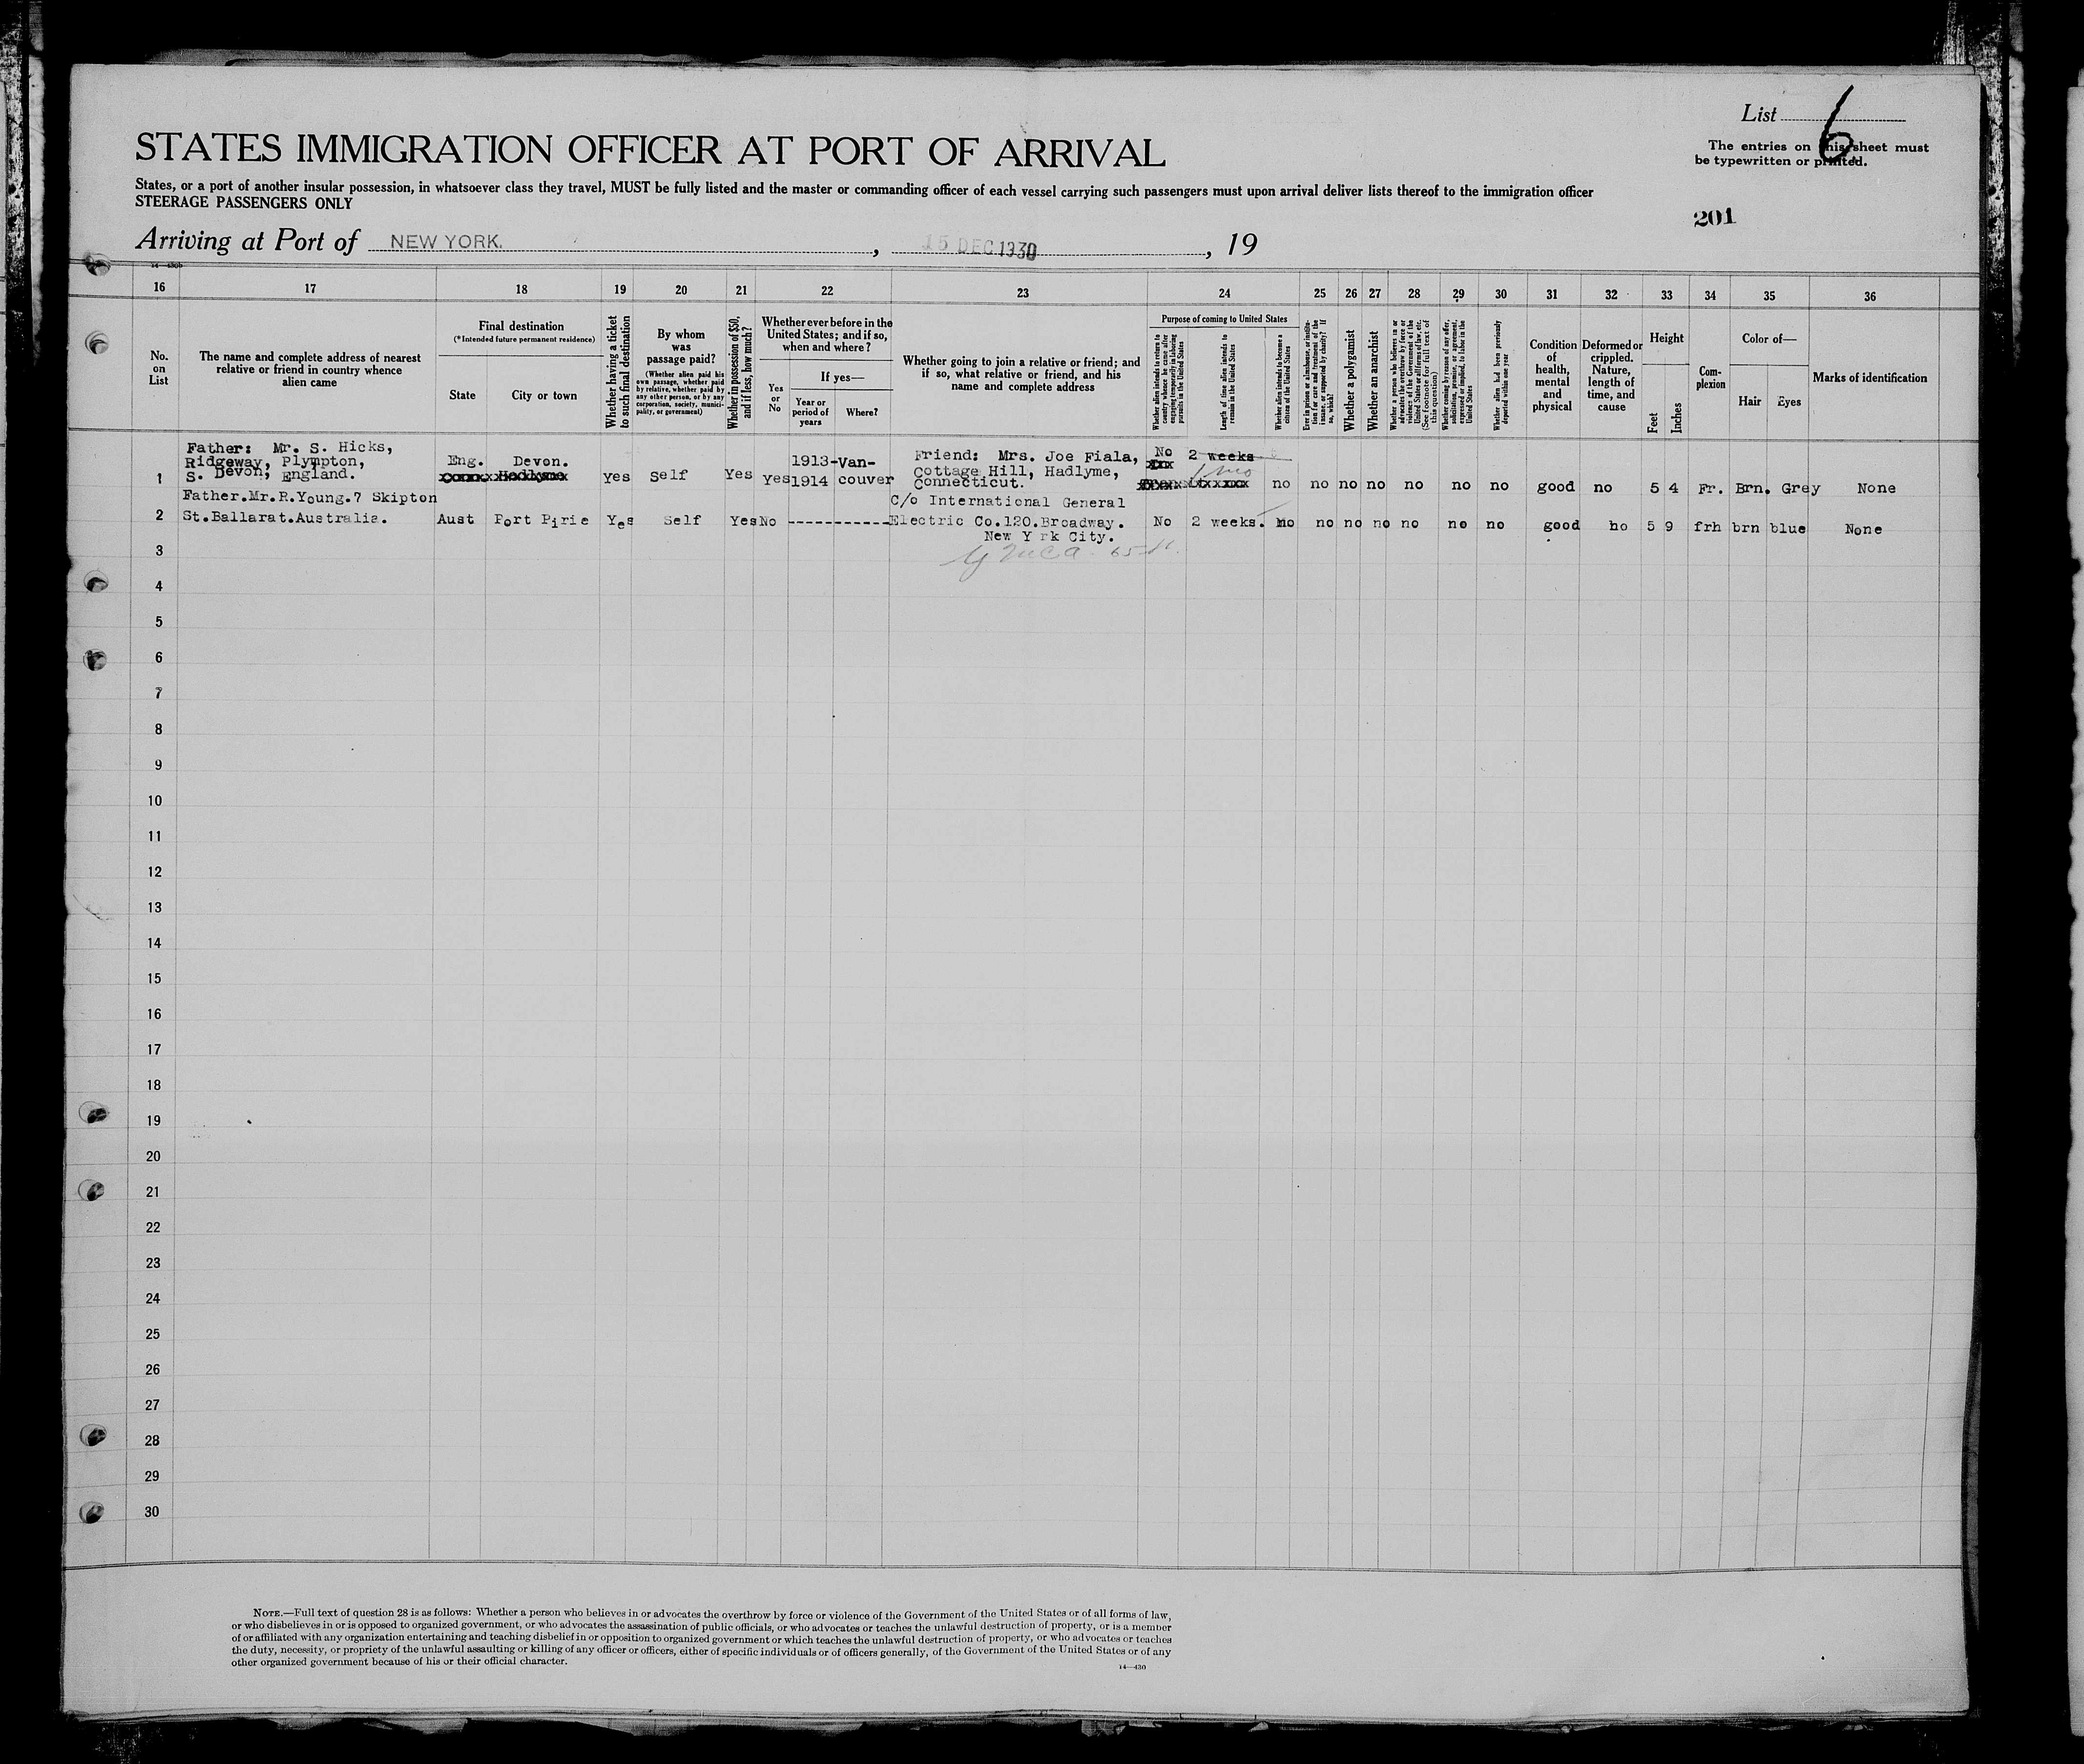 List 6
The entries on this sheet must
be typewritten or printed.
STATES IMMIGRATION OFFICER AT PORT OF ARRIVAL
States, or a port of another insular possession, in whatsoever class they travel, MUST be fully listed and the master or commanding officer of each vessel carrying such passengers must upon arrival deliver lists thereof to the immigration officer
STEERAGE PASSENGERS ONLY
201
Arriving at Port of NEW YORK. , 15 DEC 1930 , 19
16 17 18 19 20 21 22 23 24 25 26 27 28 29 30 31 32 33 34 35 36
No.
on
List
The name and complete address of nearest
relative or friend in country whence
alien came
Final destination
(*Intended future permanent residence)
State
City or town
Whether having a ticket
to such final destination
By whom
was
passage paid?
(Whether alien paid his
own passage, whether paid
by relative, whether paid by
any other person, or by any
corporation, society, munici-
pality, or government)
Whether in possession of $50,
and if less, how much?
Whether ever before in the
United States; and if so,
when and where?
Yes
or
No
If yes—
Year or
period of
years
Where?
Whether going to join a relative or friend; and
if so, what relative or friend, and his
name and complete address
Purpose of coming to United States
Whether alien intends to return to
country whence he came after
engaging temporarily in laboring
pursuits in the United States
Length of time alien intends to
remain in the United States
Whether alien intends to become a
citizen of the United States
Ever in prison or almshouse, or institu-
tion for care and treatment of the
insane, or supported by charity? If
so, which?
Whether a polygamist
Whether an anarchist
Whether a person who believes in or
advocates the overthrow by force or
violence of the Government of the
United States or all forms of law, etc.
(See footnote for full text of
this question)
Whether coming by reason of any offer,
solicitation, promise, or agreement,
expressed or implied, to labor in the
United States
Whether alien had been previously
deported within one year
Condition
of
health,
mental
and
physical
Deformed or
crippled.
Nature,
length of
time, and
cause
Height
Feet
Inches
Com-
plexion
Color of—
Hair
Eyes
Marks of identification
Father: Mr. S. Hicks,
Ridgeway, Plympton,
S. Devon, England.
1
Eng. Devon.
Hadlyme
Yes Self Yes Yes
1913- Van-
1914 couver
Friend: Mrs. Joe Fiala,
Cottage Hill, Hadlyme,
Connecticut.
No 2 weeks
1 mo
no no no no no no no good no 5 4 Fr. Brn. Grey None
Father.Mr.R.Young.7 Skipton
2 St.Ballarat.Australia. Aust Port Pirie Yes Self Yes No -----------
C/o International General
Electric Co.120.Broadway.
New Y rk City.
No 2 weeks. no no no no no no no good no 5 9 frh brn blue None
YMCA 65 st.
3
4
5
6
7
8
9
10
11
12
13
14
15
16
17
18
19
20
21
22
23
24
25
26
27
28
29
30
NOTE.—Full text of question 28 is as follows: Whether a person who believes in or advocates the overthrow by force or violence of the Government of the United States or of all forms of law,
or who disbelieves in or is opposed to organized government, or who advocates the assassination of public officials, or who advocates or teaches the unlawful destruction of property, or is a member
of or affiliated with any organization entertaining and teaching disbelief in or opposition to organized government or which teaches the unlawful destruction of property, or who advocates or teaches
the duty, necessity, or propriety of the unlawful assaulting or killing of any officer or officers, either of specific individuals or of officers generally, of the Government of the United States or of any
other organized government because of his or their official character.
14—430